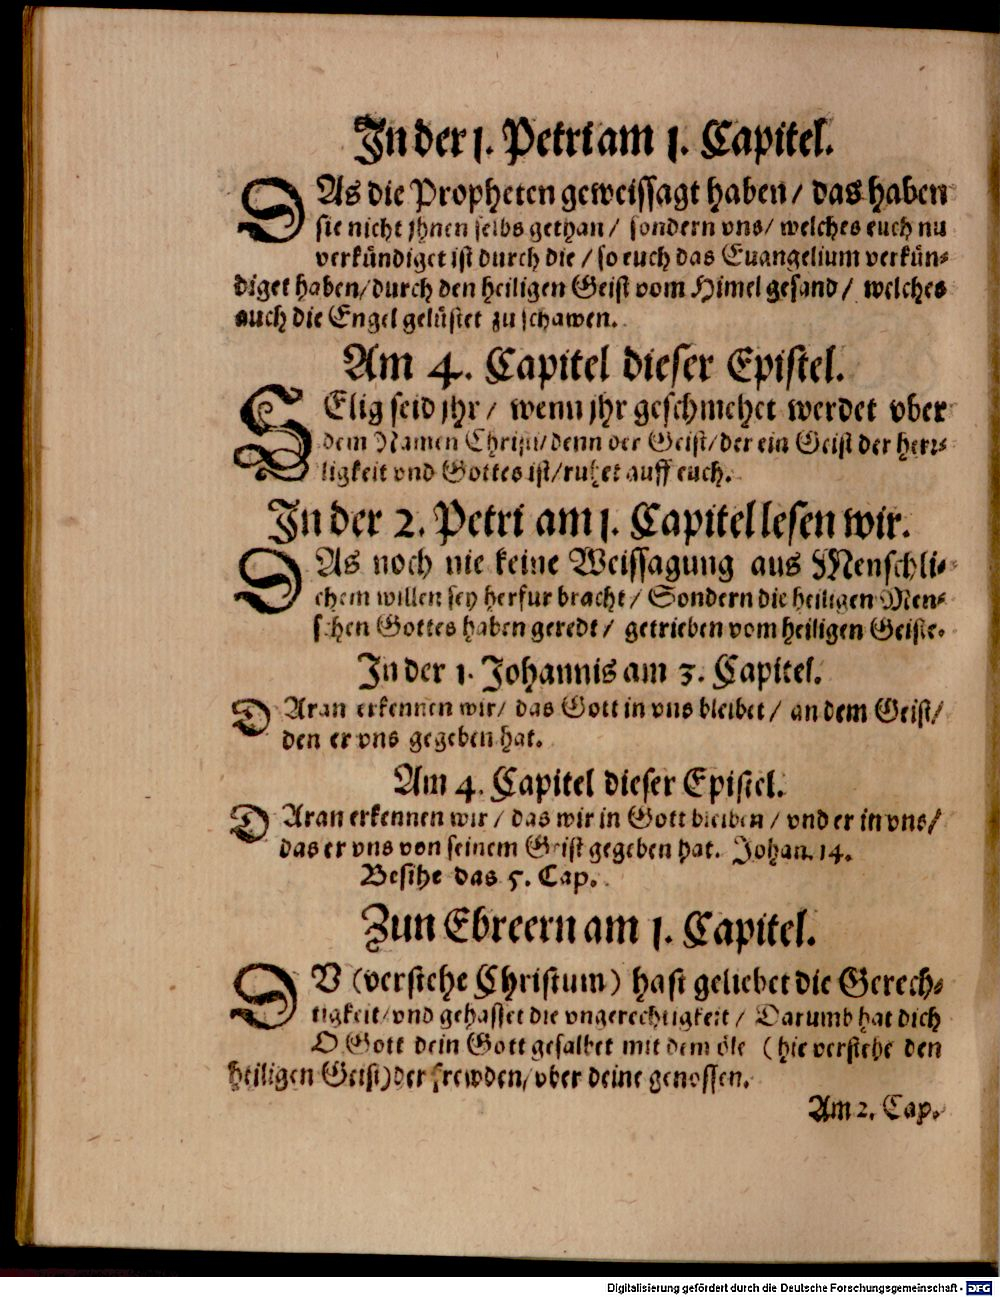 In der 1. Petri am 1. Capitel.
DAs die Propheten geweissagt haben/ das haben
sie nicht jhnen selbs gethan/ sondern vns/ welches euch nu
verkündiget ist durch die / so euch das Euangelium verkün-
diget haben/durch den heiligen Geist vom Himel gesand/ welches
auch die Engel gelüstet zu schawen.
Am 4. Capitel dieser Epistel.
SElig seid jhr/ wenn jhr geschmehet werdet vber
dem Namen Christi/denn der Geist/der ein Geist der herr-
ligkeit vnd Gottes ist/ruhet auff euch.
In der 2. Petri am 1. Capitel lesen wir.
DAs noch nie keine Weissagung aus Menschli-
chem willen sey herfur bracht/ Sondern die heiligen Men-
schen Gottes haben geredt/ getrieben vom heiligen Geiste.
In der 1. Johannis am 3. Capitel.
DAran erkennen wir/ das Gott in vns bleibet/ an dem Geist/
den er vns gegeben hat.
Am 4. Capitel dieser Epistel.
DAran erkennen wir/ das wir in Gott bleiben / vnd er in vns/
das er vns von seinem Geist gegeben hat. Johan. 14.
Besihe das 5. Cap.
Zun Ebreern am 1. Capitel.
DV (verstehe Christum) hast geliebet die Gerech-
tigkeit/vnd gehasset die vngerechtigkeit/ Darumb hat dich
O Gott dein Gott gesalbet mit dem öle (hie verstehe den
heiligen Geist) der frewden/vber deine genossen.
Am 2. Cap.
Digitalisierung gefördert durch die Deutsche Forschungsgemeinschaft - DFG